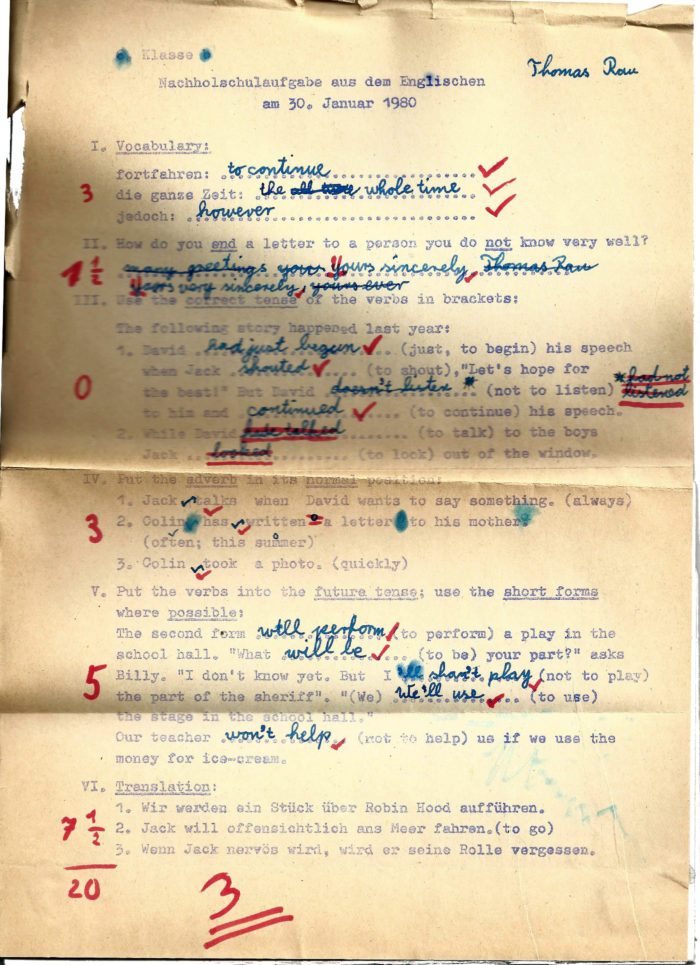 Klasse
Thomas Rau
Nachholschulaufgabe aus dem Englischen
am 30. Januar 1980
I. Vocabulary:
fortfahren: to continue
3 die ganze Zeit: the whole time
jedoch: however
II. How do you end a letter to a person you do not know very well?
1 1/2 many greetings yours Yours sincerely, Thomas Rau
Yours very sincerely, yours ever
III. Use the correct tense of the verbs in brackets:
The following story happened last year:
1. David had just begun (just, to begin) his speech
when Jack shouted (to shout),"Let's hope for
0 the best!" But David doesn't listen * (not to listen) *had not listened
to him and continued (to continue) his speech.
2. While David talked (to talk) to the boys
Jack looked (to look) out of the window.
IV. Put the adverb in its normal position:
1. Jack talks when David wants to say something. (always)
3 2. Colin has written a letter to his mother.
(often; this summer)
3. Colin took a photo. (quickly)
V. Put the verbs into the future tense; use the short forms
where possible:
The second form will perform (to perform) a play in the
school hall. "What will be (to be) your part?" asks
5 Billy. "I don't know yet. But I shan't play (not to play)
the part of the sheriff". "(We) We'll use (to use)
the stage in the school hall."
Our teacher won't help (not to help) us if we use the
money for ice-cream.
VI. Translation:
1. Wir werden ein Stück über Robin Hood aufführen.
7 1/2 2. Jack will offensichtlich ans Meer fahren.(to go)
3. Wenn Jack nervös wird, wird er seine Rolle vergessen.
20
3